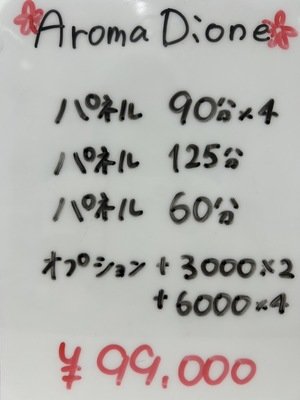 Aroma Dione
パネル 90分×4
パネル 125分
パネル 60分
オプション +3000×2
+6000×4
¥99,000